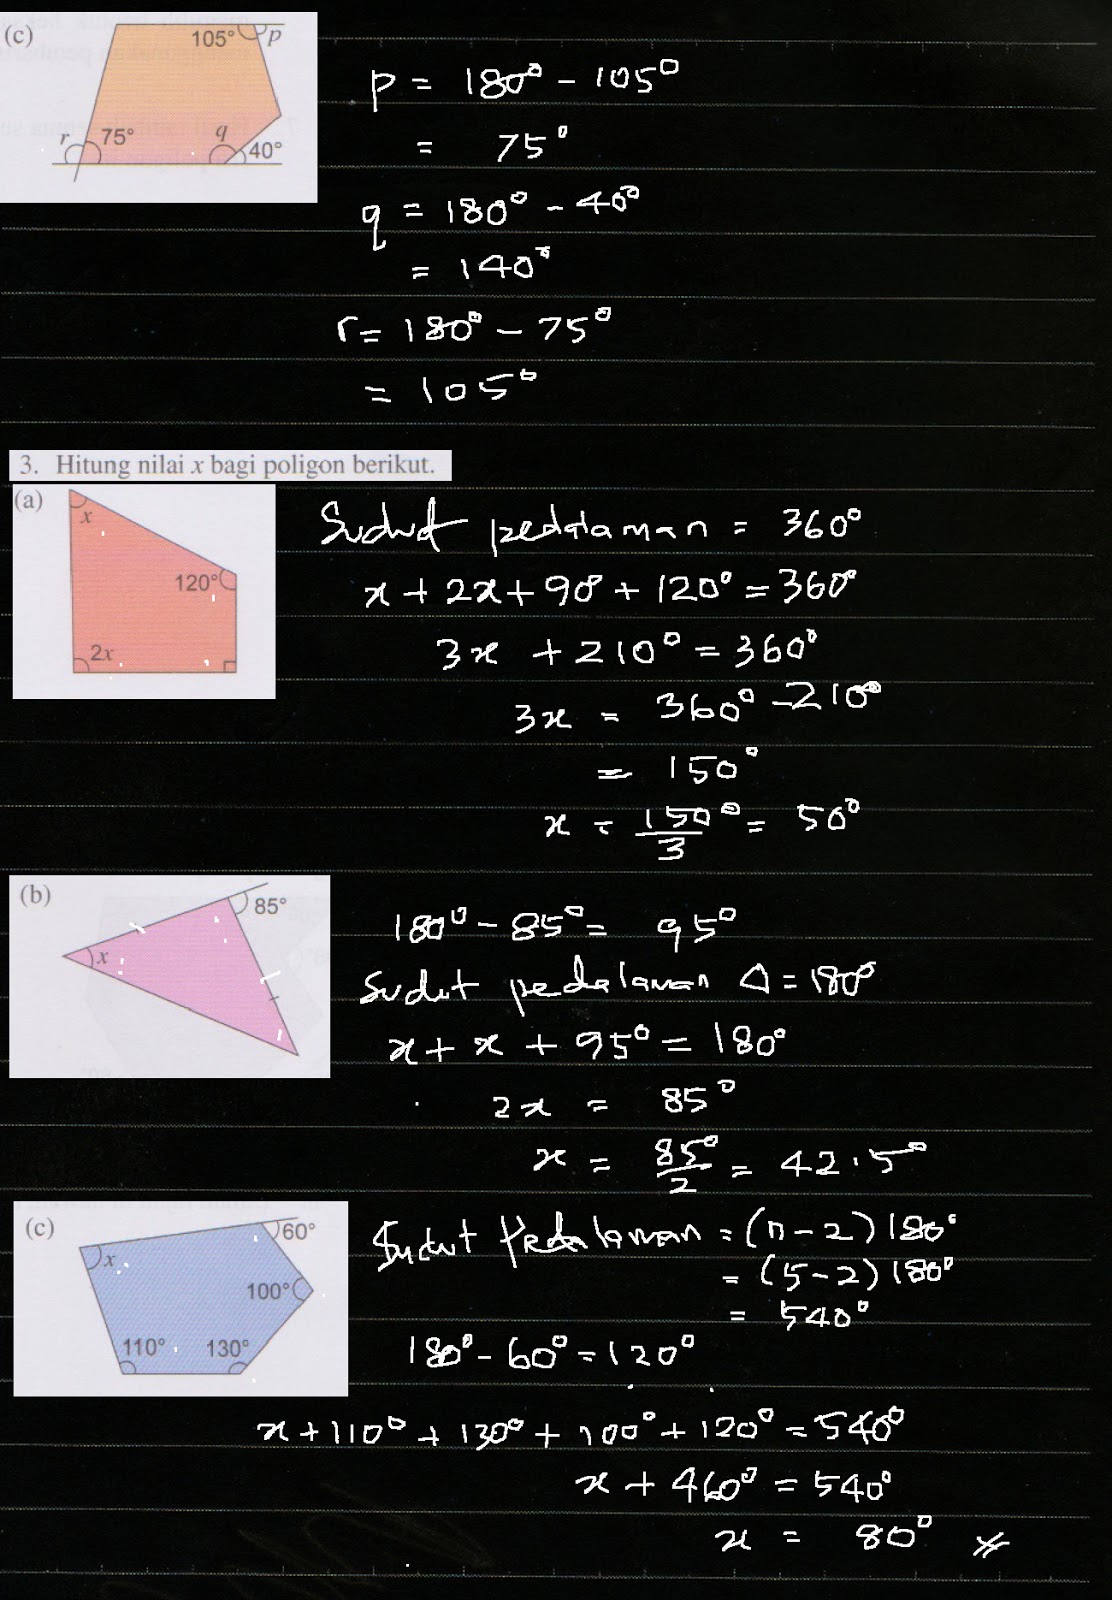 (c)
105° p
r 75° q 40°
p = 180° - 105°
= 75°
q = 180° - 40°
= 140°
r = 180° - 75°
= 105°
3. Hitung nilai x bagi poligon berikut.
(a)
x
120°
2x
Sudut pedalaman = 360°
x + 2x + 90° + 120° = 360°
3x + 210° = 360°
3x = 360° - 210°
= 150°
x = 150°/3 = 50°
(b)
85°
x
180° - 85° = 95°
Sudut pedalaman Δ = 180°
x + x + 95° = 180°
2x = 85°
x = 85°/2 = 42.5°
(c)
60°
x
100°
110° 130°
Sudut Pedalaman = (n - 2) 180°
= (5 - 2) 180°
= 540°
180° - 60° = 120°
x + 110° + 130° + 100° + 120° = 540°
x + 460° = 540°
x = 80°